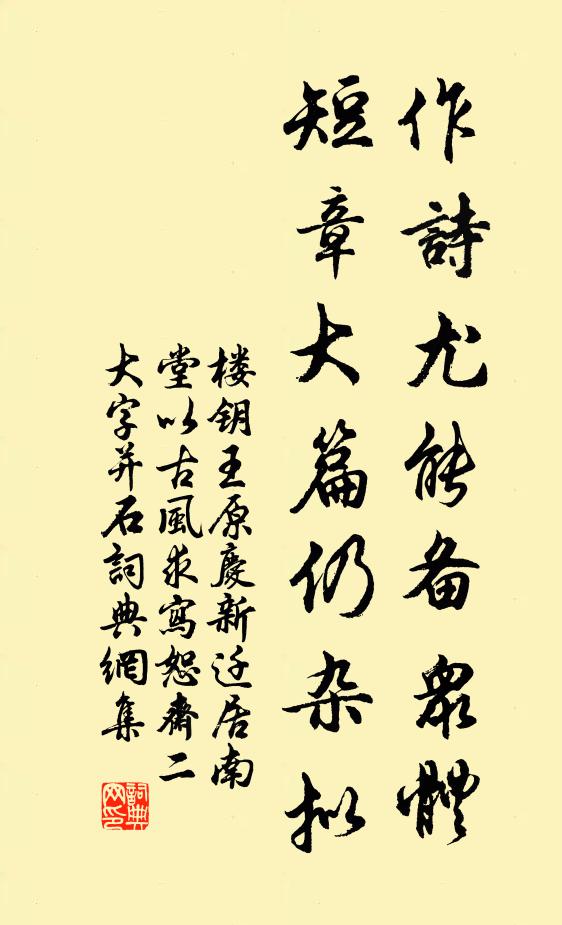 作詩尤能备衆體
短章大篇仍杂拟
楼钥王原慶新迁居南
堂以古風求寫恕齋二
大字并石詞典網集
詞典
网印